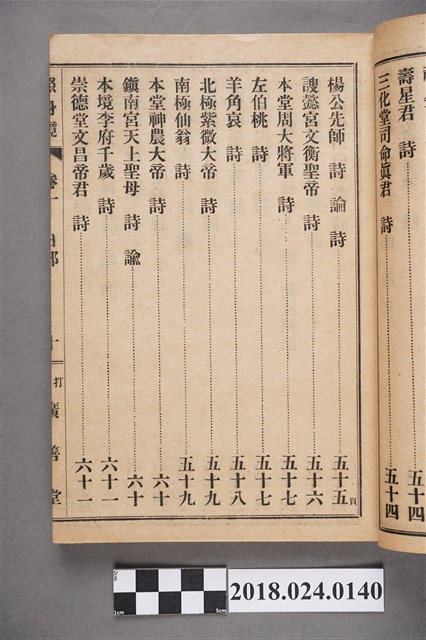 壽星君 詩 五十四
三化堂司命眞君 詩 五十四
楊公先師 詩 論 詩 五十五頁
謏懿宮文衡聖帝 詩 五十六
本堂周大將軍 詩 五十七
左伯桃 詩 五十七
羊角哀 詩 五十八
北極紫微大帝 詩 五十九
南極仙翁 詩 五十九
本堂神農大帝 詩 六十
鎭南宮天上聖母 詩 諭 六十
本境李府千歲 詩 六十一
崇德堂文昌帝君 詩 六十一
卷一 十 打 廣善堂
2cm
1cm
5cm
2018.024.0140